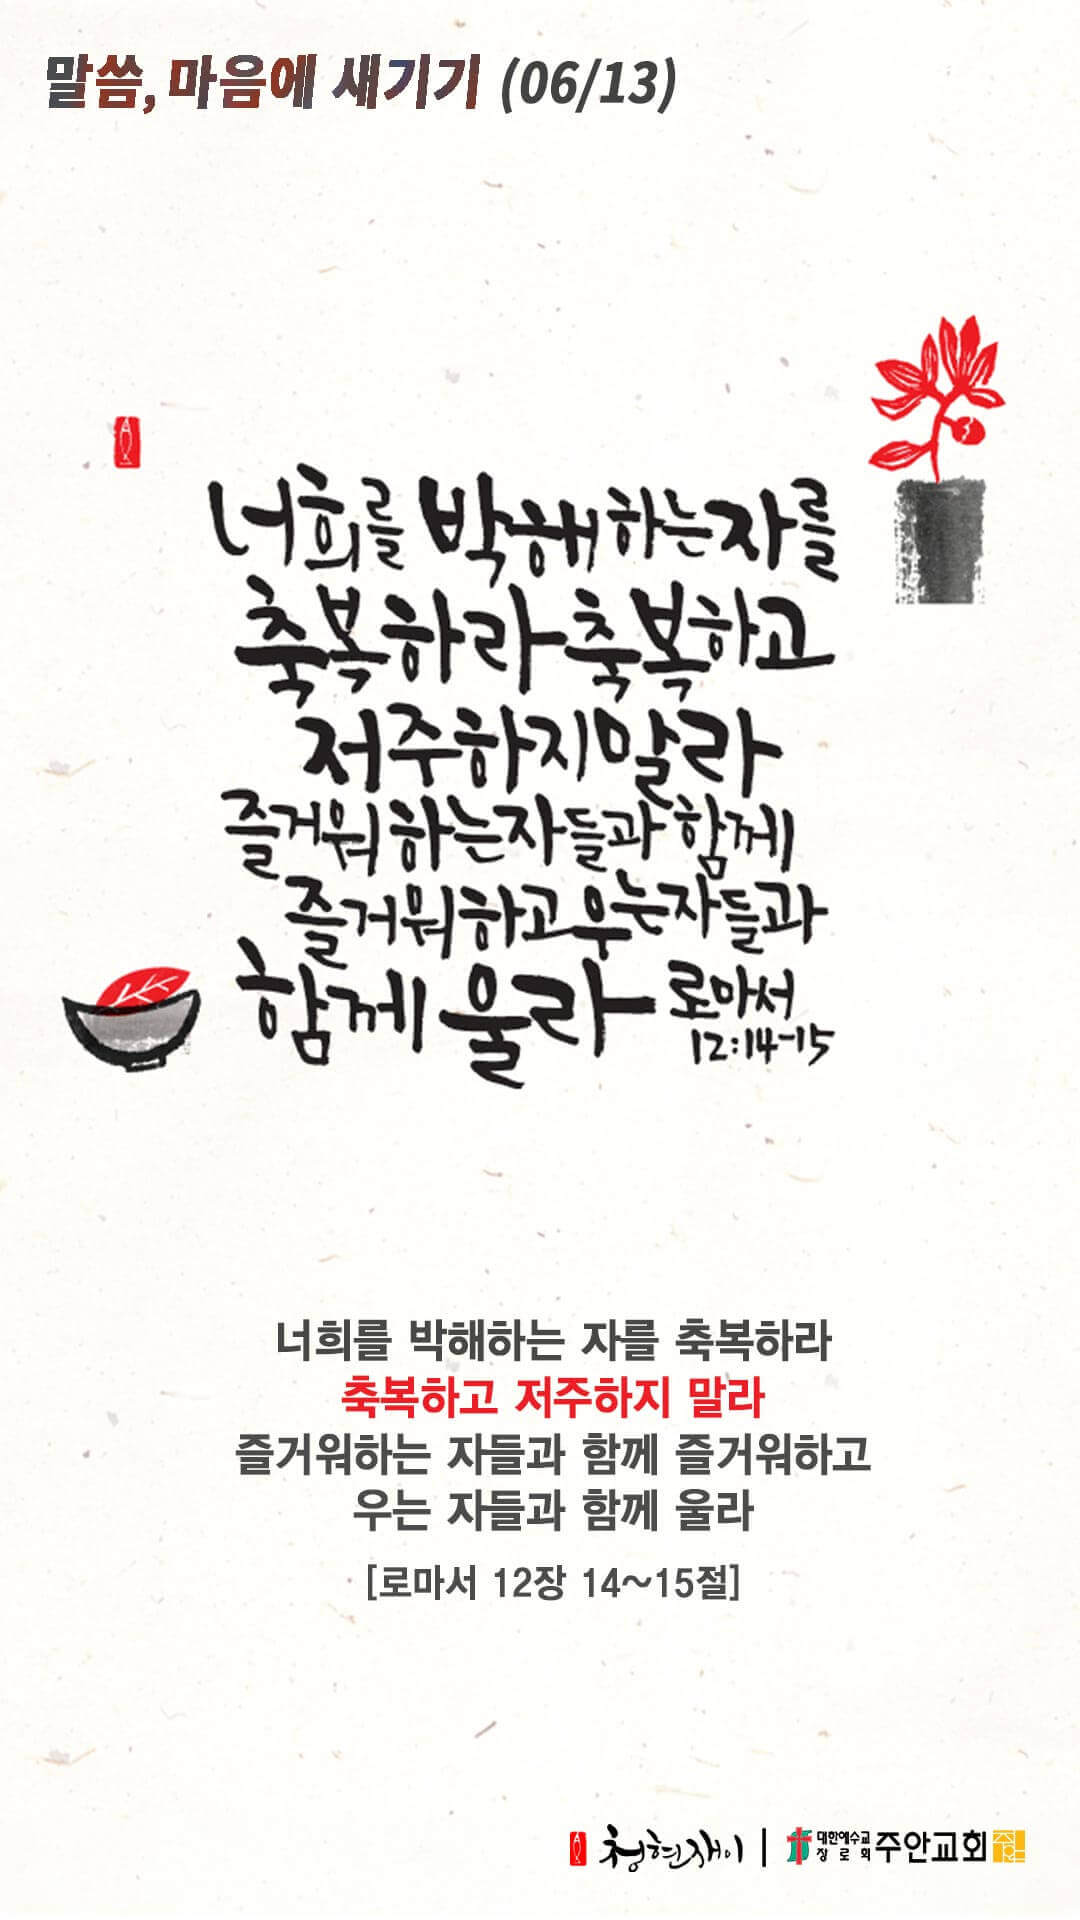 말씀, 마음에 새기기 (06/13)
너희를 박해하는 자를
축복하라 축복하고
저주하지 말라
즐거워하는 자들과 함께
즐거워하고 우는 자들과
함께 울라 로마서
12:14-15
너희를 박해하는 자를 축복하라
축복하고 저주하지 말라
즐거워하는 자들과 함께 즐거워하고
우는 자들과 함께 울라
[로마서 12장 14~15절]
청현재이 | 대한예수교
장로회 주안교회